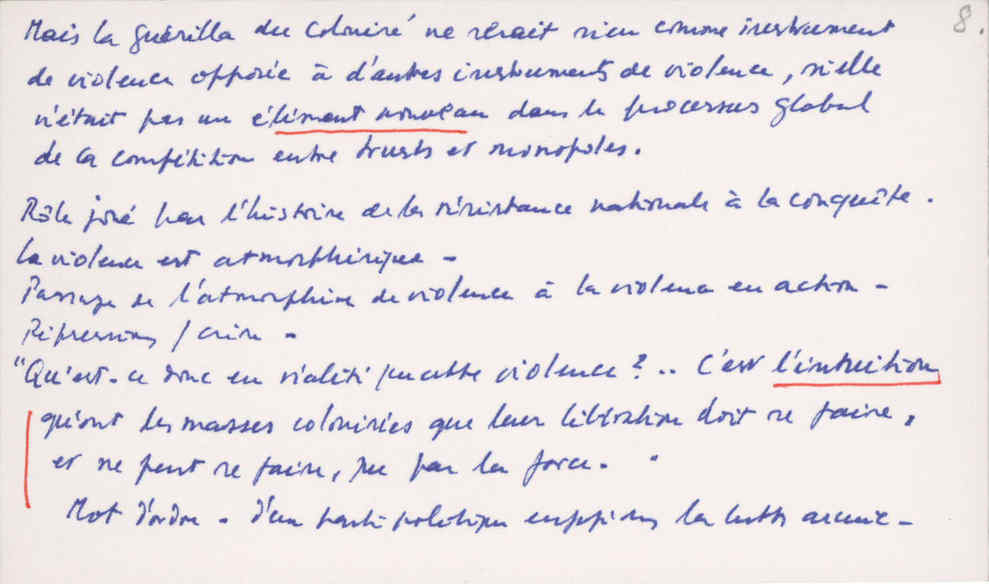 8.
Mais la guérilla du colonisé ne serait rien comme instrument
de violence opposée à d'autres instruments de violence, si elle
n'était pas un élément nouveau dans le processus global
de la compétition entre trusts et monopoles.
Rôle joué par l'histoire de la résistance nationale à la conquête.
La violence est atmosphérique -
Passage de l'atmosphère de violence à la violence en action -
Répressions / crise -
"Qu'est-ce donc en réalité que cette violence ? .. C'est l'intuition
qu'ont les masses colonisées que leur libération doit se faire,
et ne peut se faire, que par la force. "
Mot d'ordre - d'un parti politique la lutte armée -